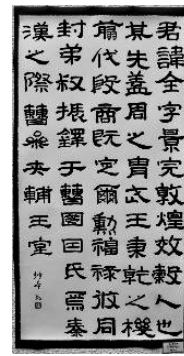 君諱全字景完敦煌效穀人也
其先蓋周之胄武王秉乾之機
翦伐殷商既定爾勳福祿攸同
封弟叔振鐸于曹國因氏焉秦
漢之際曹參夾輔王室